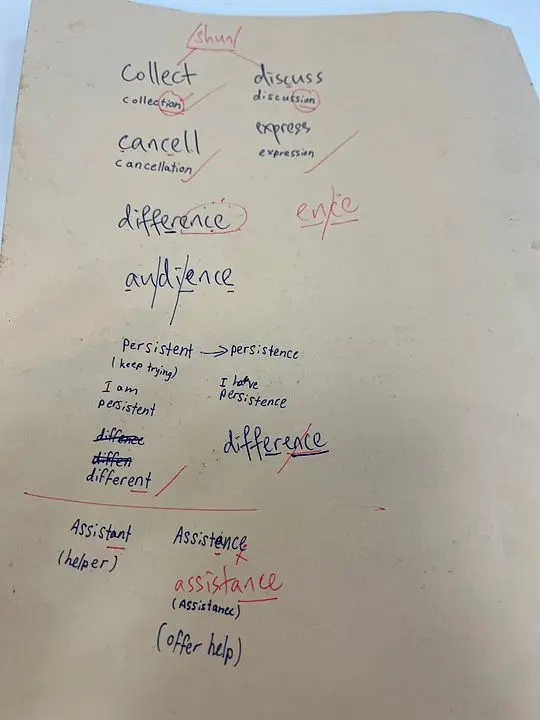 /shun/
collect discuss
collection discussion
cancell express
cancellation expression
difference en/ce
au/di/ence
Persistent → persistence
(keep trying)
I am I have
persistent persistence
diffence
diffen
different difference
Assistant Assistence x
(helper)
assistance
(Assistance)
(offer help)